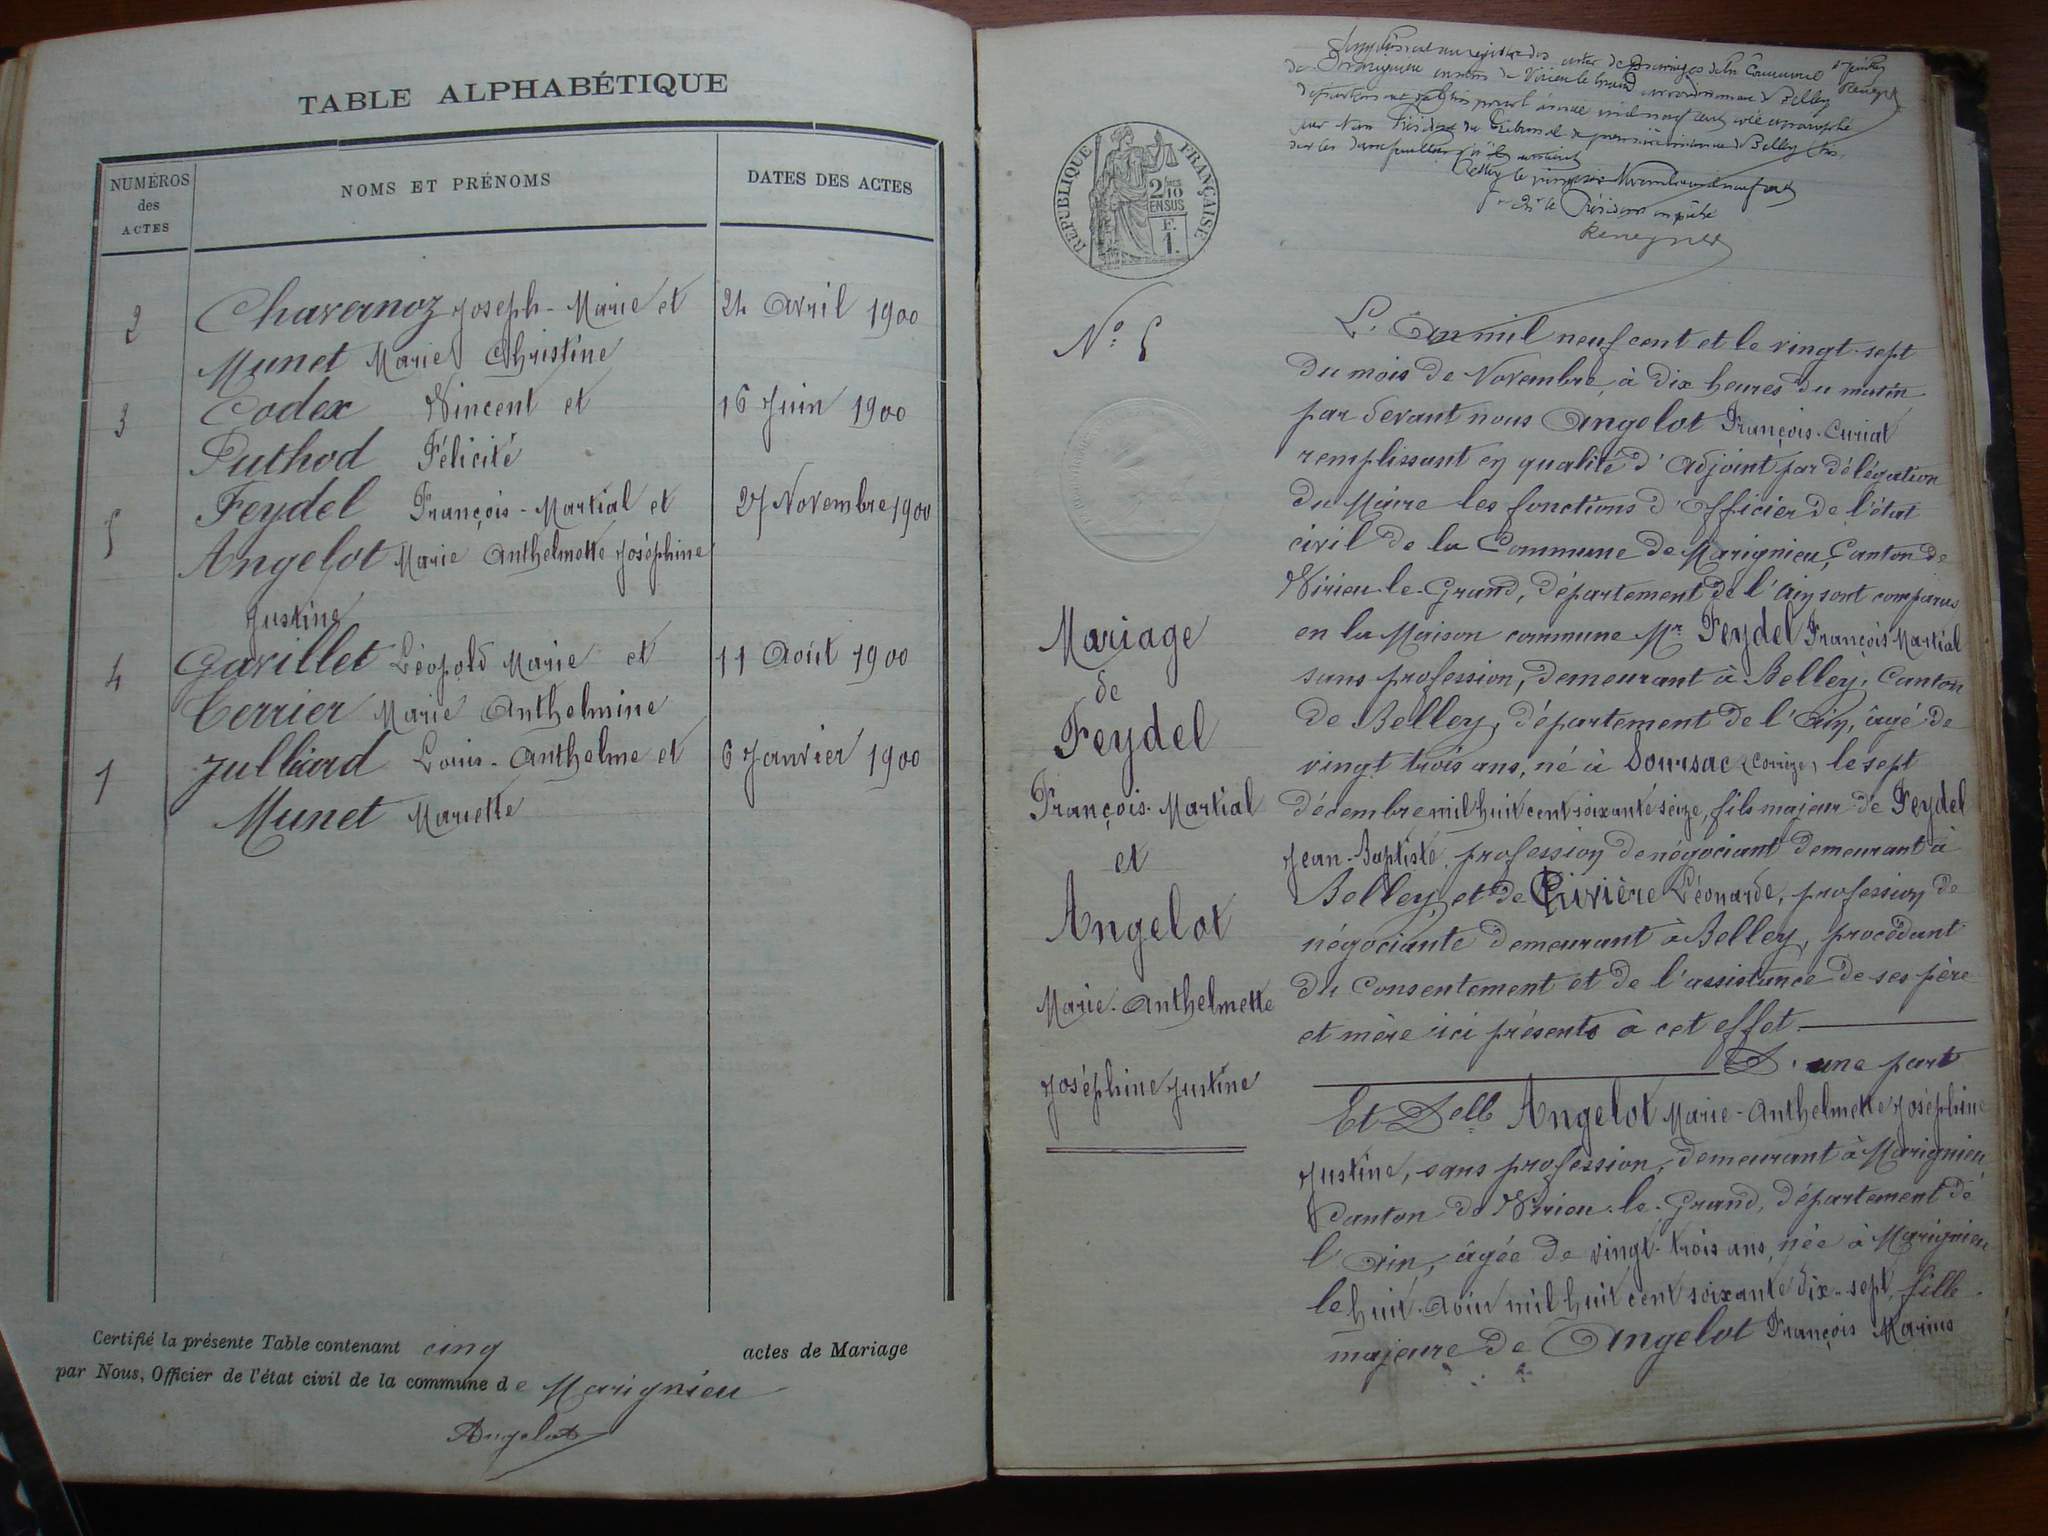 TABLE ALPHABÉTIQUE
NUMÉROS des ACTES
NOMS ET PRÉNOMS
DATES DES ACTES
2 Chavernoz Joseph-Marie et 24 Avril 1900
Munet Marie Christine
3 Codex Vincent et 16 Juin 1900
Puthod Félicité
5 Feydel François-Martial et 27 Novembre 1900
Angelot Marie Anthelmette Joséphine
Justine
4 Gavillet Léopold Marie et 11 Août 1900
Terrier Marie Anthelmine
1 Julliard Louis-Anthelme et 6 Janvier 1900
Munet Mariette
Certifié la présente Table contenant cinq actes de Mariage
par Nous, Officier de l'état civil de la commune de Marignieu
Angelot
RÉPUBLIQUE FRANÇAISE
2/10 EN SUS
F. 1.
N° 5
Mariage
de
Feydel
François-Martial
et
Angelot
Marie-Anthelmette
Joséphine Justine
L'An mil neuf cent et le vingt-sept
du mois de Novembre, à dix heures du matin
par devant nous Angelot François-Curiat
remplissant en qualité d'Adjoint par délégation
du Maire les fonctions d'Officier de l'état
civil de la Commune de Marignieu, Canton de
Virieu-le-Grand, département de l'Ain sont comparus
en la Maison commune Mr Feydel François-Martial
sans profession, demeurant à Belley, Canton
de Belley, département de l'Ain, âgé de
vingt trois ans, né à Soursac (Corrèze) le sept
décembre mil huit cent soixante seize, fils majeur de Feydel
Jean-Baptiste, profession de négociant demeurant à
Belley, et de Rivière Léonarde, profession de
négociante demeurant à Belley, procédant
du Consentement et de l'assistance de ses père
et mère ici présents à cet effet
D'une part
Et Delle Angelot Marie-Anthelmette Joséphine
Justine, sans profession, demeurant à Marignieu,
Canton de Virieu-le-Grand, département de
l'Ain, âgée de vingt-trois ans, née à Marignieu
le huit Août mil huit cent soixante dix-sept, fille
majeure de Angelot François Marius